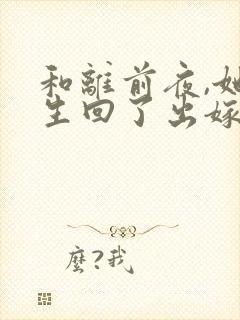 和離前夜,她
生回了出嫁
麼?我